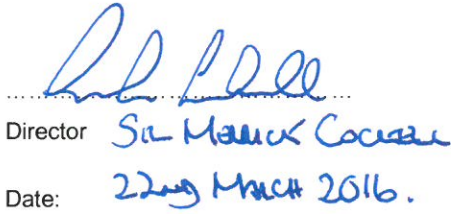 Director Sir Merrick Cockell
Date: 22nd March 2016.